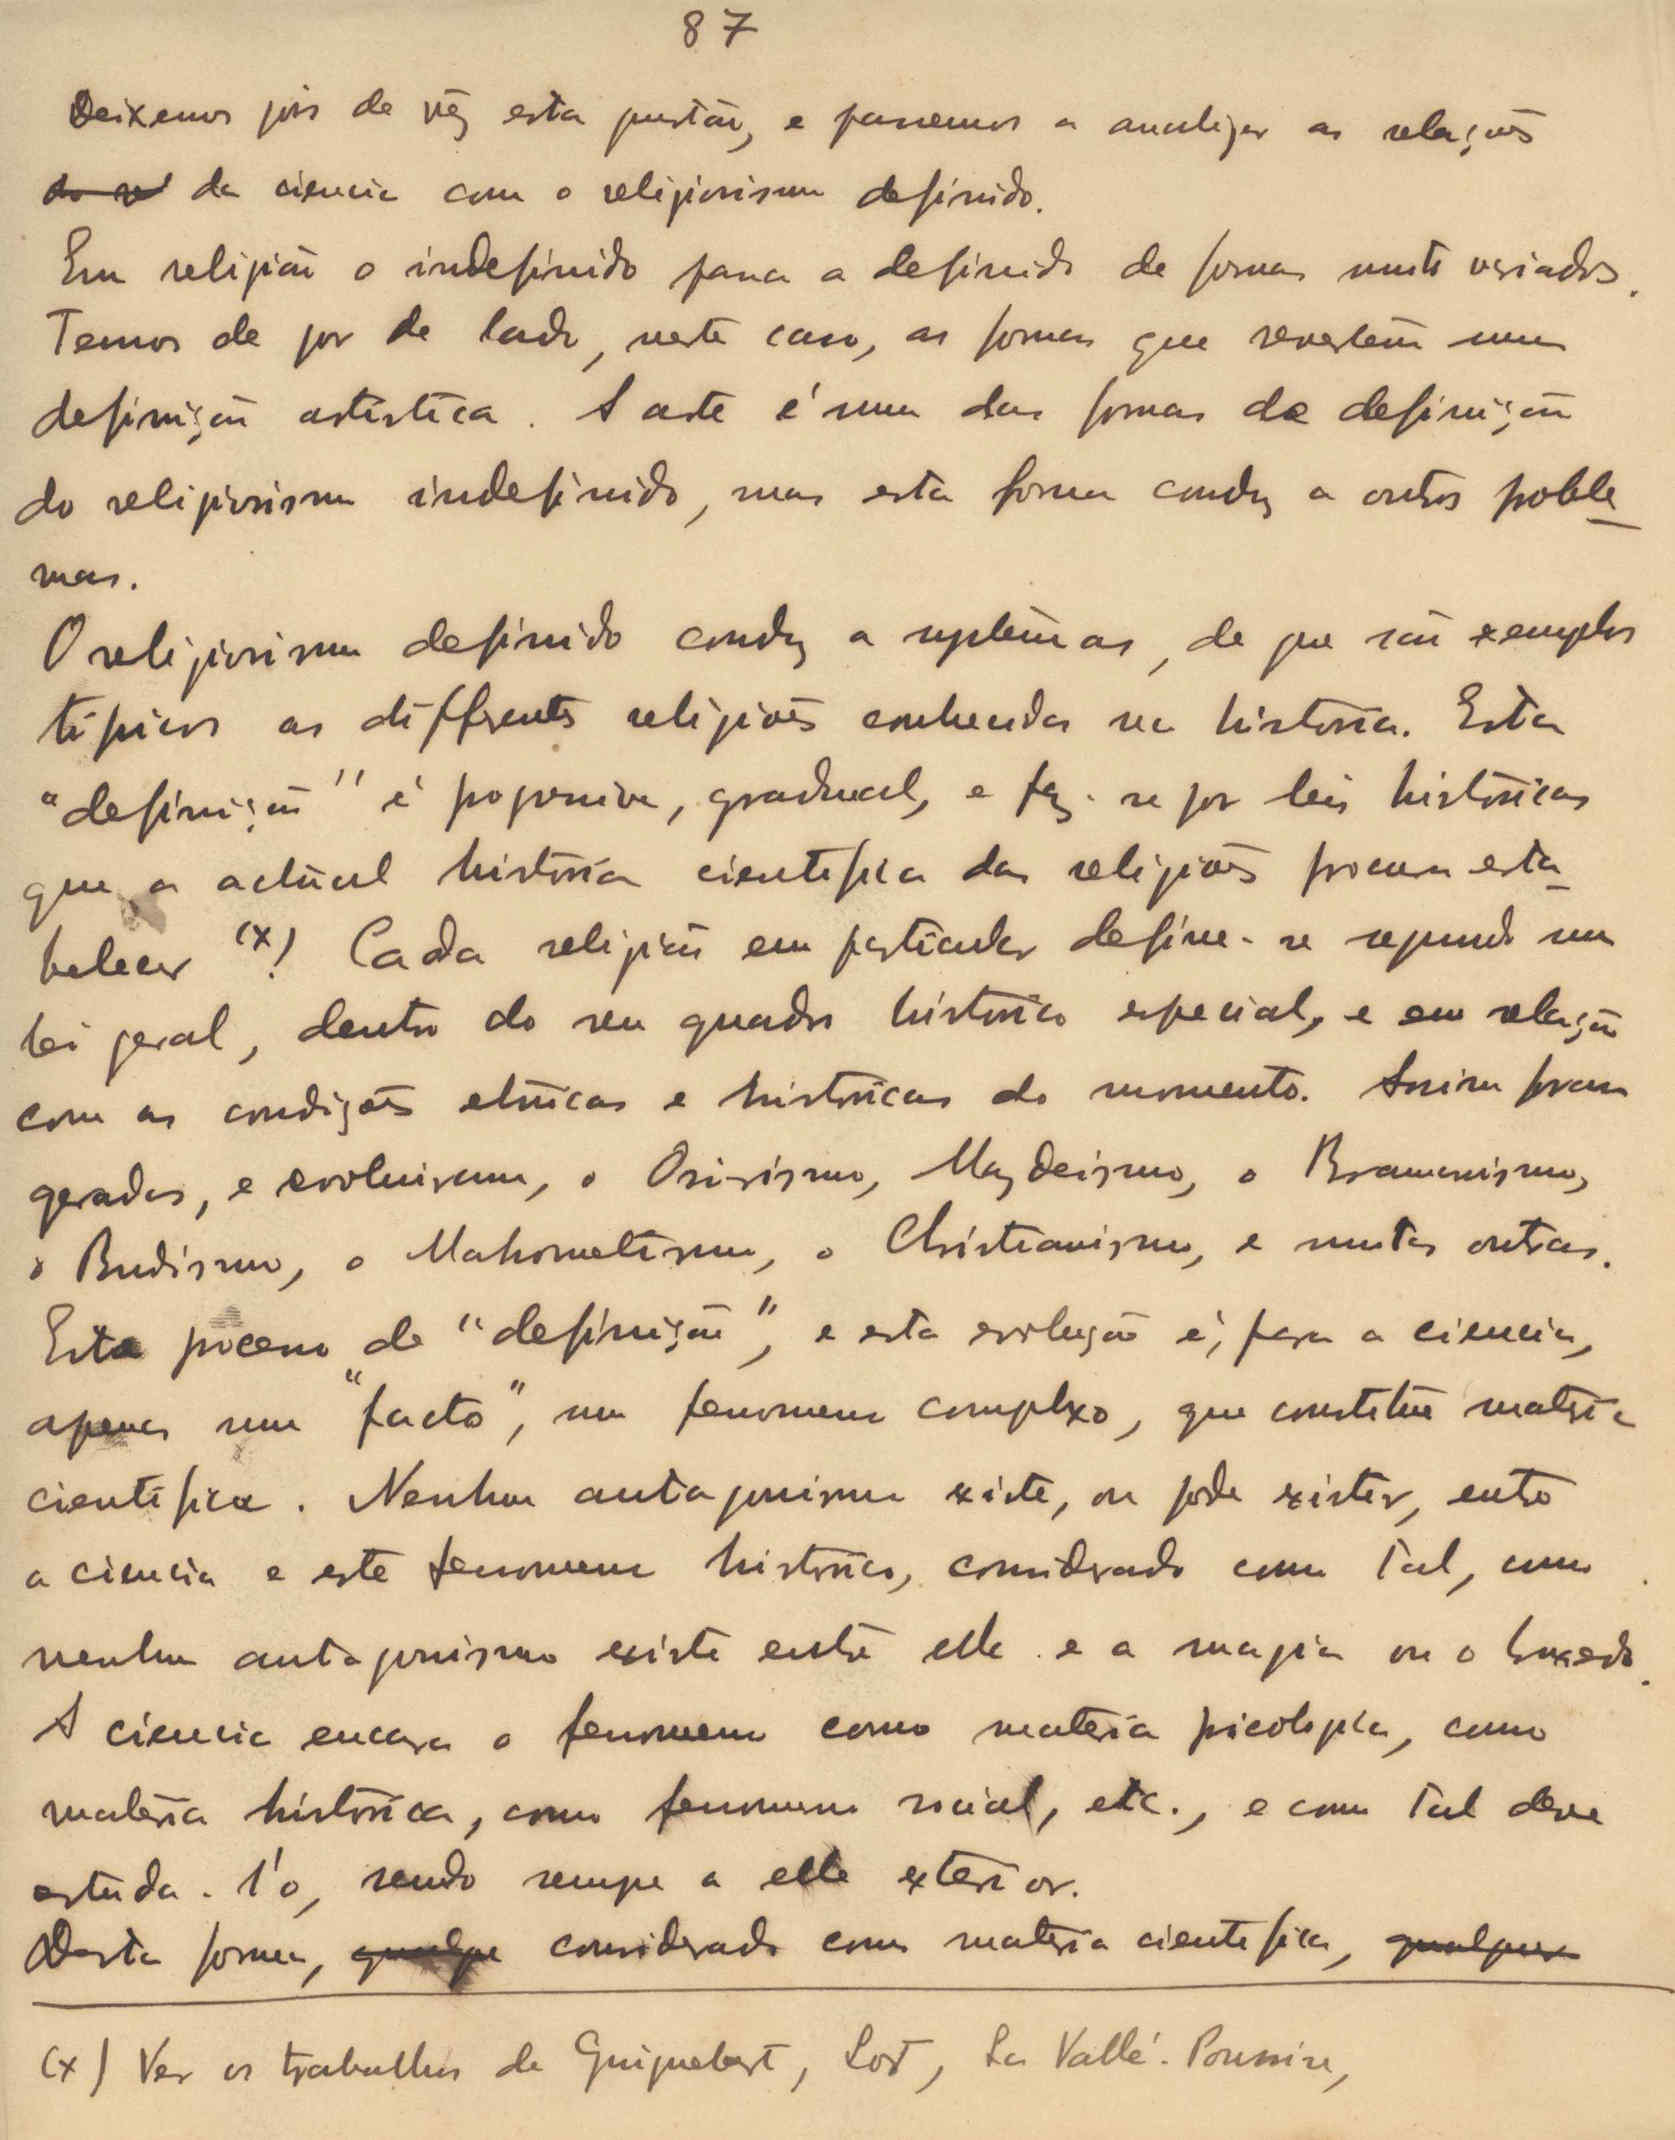 87
Deixemos pois de vêz esta questão, e passemos a analizar as relações
do re da ciencia com o religiosismo definido.
Em religião o indefinido passa a definido de formas muito variadas.
Temos de por de lado, neste caso, as formas que revestem uma
definição artistica. A arte é uma das formas de definição
do religiosismo indefinido, mas esta forma conduz a outros proble-
mas.
O religiosismo definido conduz a systemas, de que são exemplos
tipicos as differentes religiões conhecidas na historia. Esta
"definição" é progressiva, gradual, e faz-se por leis historicas
que a actual historia cientifica das religiões procura esta-
belecer (x). Cada religião em particular define-se segundo uma
lei geral, dentro do seu quadro historico especial, e em relação
com as condições etnicas e historicas do momento. Assim foram
geradas, e evoluiram, o Osirismo, Mazdeismo, o Bramanismo,
o Budismo, o Mahometismo, o Christianismo, e muitas outras.
Este processo de "definição", e esta evolução é, para a ciencia,
apenas um "facto", um fenomeno complexo, que constitúe materia
cientifica. Nenhum antagonismo existe, ou pode existir, entre
a ciencia e este fenomeno historico, considerado como tal, como
nenhum antagonismo existe entre elle e a magia ou o bruxedo.
A ciencia encara o fenomeno como materia psicologica, como
materia historica, como fenomeno social, etc., e como tal deve
estuda-l'o, sendo sempre a elle exterior.
Desta forma, qualque considerado como materia cientifica, qualquer
(x) Ver os trabalhos de Guignebert, La Vallé-Poussin,